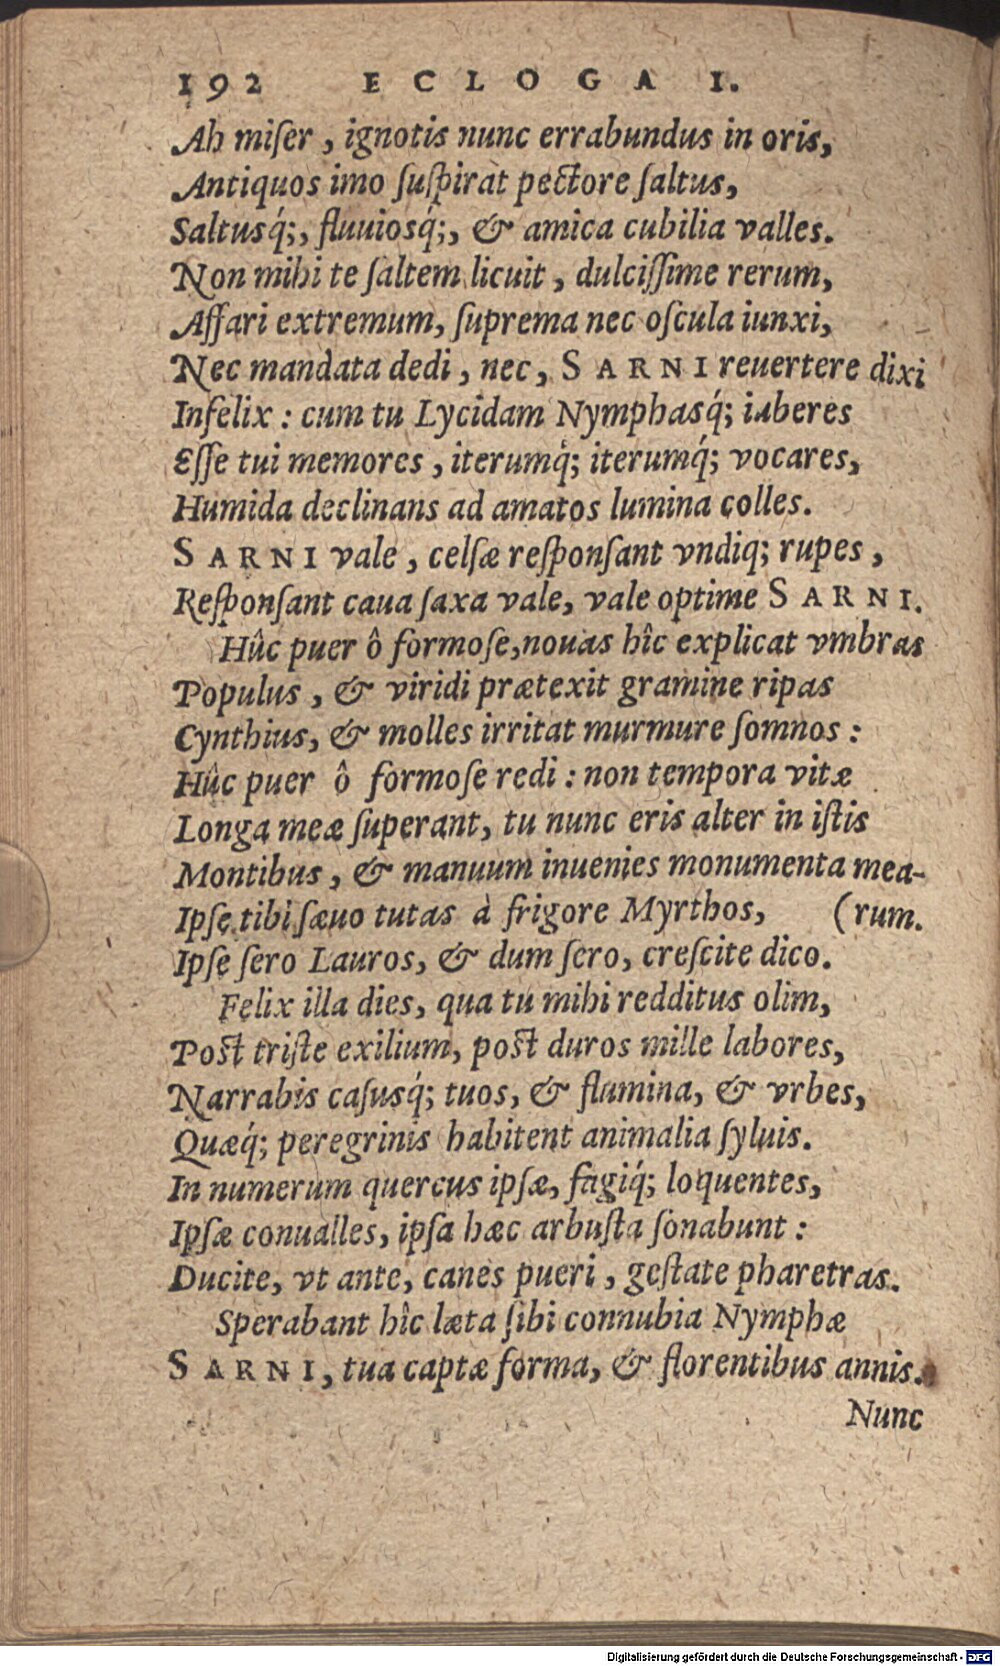 192 ECLOGA I.
Ah miſer, ignotis nunc errabundus in oris,
Antiquos imo ſuſpirat pectore ſaltus,
Saltusq́;, fluuiosq́;, & amica cubilia valles.
Non mihi te ſaltem licuit, dulciſſime rerum,
Affari extremum, ſuprema nec oſcula iunxi,
Nec mandata dedi, nec, SARNI reuertere dixi
Infelix: cum tu Lycidam Nymphasq́; iuberes
Eſſe tui memores, iterumq́; iterumq́; vocares,
Humida declinans ad amatos lumina colles.
SARNI vale, celſæ reſponſant vndiq; rupes,
Reſponſant caua ſaxa vale, vale optime SARNI.
Hûc puer ô formoſe, nouas hîc explicat vmbras
Populus, & viridi prætexit gramine ripas
Cynthius, & molles irritat murmure ſomnos:
Hûc puer ô formoſe redi: non tempora vitæ
Longa meæ ſuperant, tu nunc eris alter in iſtis
Montibus, & manuum inuenies monumenta mea-
Ipſe tibi ſæuo tutas à frigore Myrthos, (rum.
Ipſe ſero Lauros, & dum ſero, creſcite dico.
Felix illa dies, qua tu mihi redditus olim,
Poſt triſte exilium, poſt duros mille labores,
Narrabis caſusq́; tuos, & flumina, & vrbes,
Quæq́; peregrinis habitent animalia ſyluis.
In numerum quercus ipſæ, fagiq́; loquentes,
Ipſæ conualles, ipſa hæc arbuſta ſonabunt:
Ducite, vt ante, canes pueri, geſtate pharetras.
Sperabant hîc læta ſibi connubia Nymphæ
SARNI, tua captæ forma, & florentibus annis.
Nunc
Digitalisierung gefördert durch die Deutsche Forschungsgemeinschaft - DFG